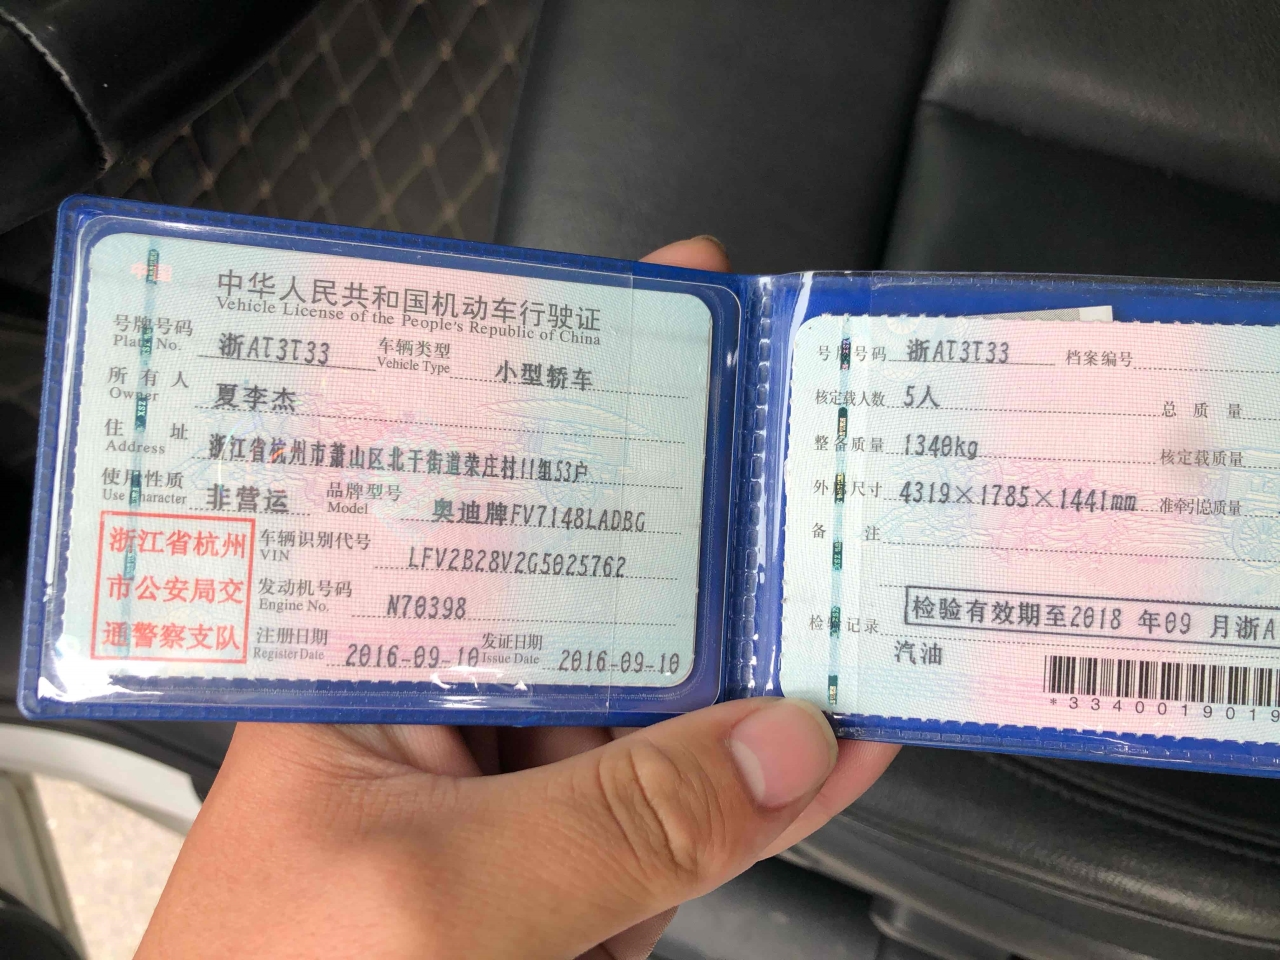 中华人民共和国机动车行驶证
Vehicle License of the People's Republic of China
号牌号码 浙AT3T33 车辆类型 小型轿车
Plate No. Vehicle Type
所有人 夏李杰
Owner
住址 浙江省杭州市萧山区北干街道荣庄村11组53户
Address
使用性质 非营运 品牌型号 奥迪牌FV7148LADBG
Use Character Model
浙江省杭州
市公安局交
通警察支队
车辆识别代号 LFV2B28V2G5025762
VIN
发动机号码 N70398
Engine No.
注册日期 2016-09-10 发证日期 2016-09-10
Register Date Issue Date
号牌号码 浙AT3T33 档案编号
核定载人数 5人 总质量
整备质量 1340kg 核定载质量
外廓尺寸 4319×1785×1441mm 准牵引总质量
备注
检验有效期至2018 年09 月浙A
检验记录
汽油
*3340019019